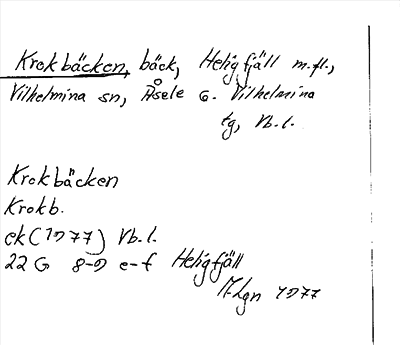 Krokbäcken, bäck, Heligfjäll m.fl.,
Vilhelmina sn, Åsele G. Vilhelmina
tg, Vb.l.
Krokbäcken
Krokb.
ek (1977) Vb.l.
22 G 8-9 e-f Heligfjäll
M-Lgn 1977